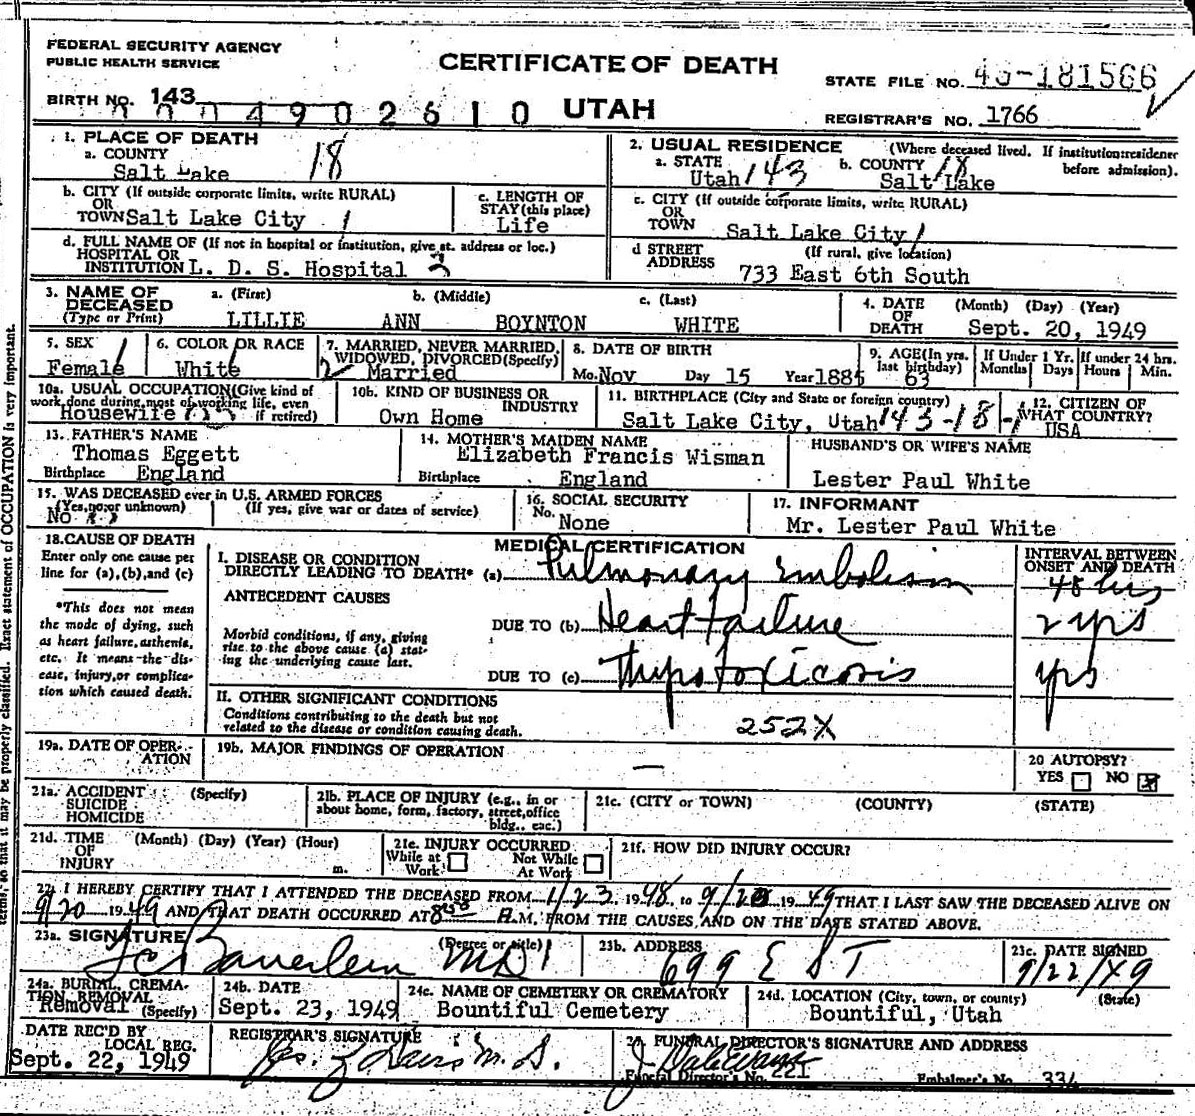 FEDERAL SECURITY AGENCY
PUBLIC HEALTH SERVICE
CERTIFICATE OF DEATH
STATE FILE NO. 49-181566
BIRTH NO. 143
0 0 0 4 9 0 2 6 1 0
UTAH
REGISTRAR'S NO. 1766
1. PLACE OF DEATH
a. COUNTY
Salt Lake 18
2. USUAL RESIDENCE (Where deceased lived. If institution:residence before admission).
a. STATE Utah 143 b. COUNTY 18 Salt Lake
b. CITY (If outside corporate limits, write RURAL)
OR
TOWN Salt Lake City 1
c. LENGTH OF STAY (this place)
Life
c. CITY (If outside corporate limits, write RURAL)
OR
TOWN Salt Lake City 1
d. FULL NAME OF (If not in hospital or institution, give st. address or loc.)
HOSPITAL OR
INSTITUTION L. D. S. Hospital 3
d STREET ADDRESS (If rural, give location)
733 East 6th South
3. NAME OF DECEASED
(Type or Print)
a. (First) b. (Middle) c. (Last)
LILLIE ANN BOYNTON WHITE
4. DATE OF DEATH (Month) (Day) (Year)
Sept. 20, 1949
5. SEX 1
Female
6. COLOR OR RACE
White 1
7. MARRIED, NEVER MARRIED, WIDOWED, DIVORCED(Specify)
2 Married
8. DATE OF BIRTH
Mo. Nov Day 15 Year 1885
9. AGE(In yrs. last birthday)
63
If Under 1 Yr. Months Days
If under 24 hrs. Hours Min.
10a. USUAL OCCUPATION(Give kind of work done during most of working life, even if retired)
Housewife
10b. KIND OF BUSINESS OR INDUSTRY
Own Home
11. BIRTHPLACE (City and State or foreign country)
Salt Lake City, Utah 143-18-1
12. CITIZEN OF WHAT COUNTRY?
USA
13. FATHER'S NAME
Thomas Eggett
Birthplace England
14. MOTHER'S MAIDEN NAME
Elizabeth Francis Wisman
Birthplace England
HUSBAND'S OR WIFE'S NAME
Lester Paul White
15. WAS DECEASED ever in U.S. ARMED FORCES
(Yes,no,or unknown) (If yes, give war or dates of service)
No
16. SOCIAL SECURITY
No. None
17. INFORMANT
Mr. Lester Paul White
18. CAUSE OF DEATH
Enter only one cause per line for (a),(b),and (c)
*This does not mean the mode of dying, such as heart failure, asthenia, etc. It means the disease, injury, or complication which caused death.
MEDICAL CERTIFICATION
INTERVAL BETWEEN ONSET AND DEATH
I. DISEASE OR CONDITION
DIRECTLY LEADING TO DEATH* (a) Pulmonary embolism 48 hrs
ANTECEDENT CAUSES
Morbid conditions, if any, giving rise to the above cause (a) stating the underlying cause last.
DUE TO (b) Heart failure 2 yrs
DUE TO (c) Thyrotoxicosis yrs
II. OTHER SIGNIFICANT CONDITIONS
Conditions contributing to the death but not related to the disease or condition causing death.
252X
19a. DATE OF OPERATION
19b. MAJOR FINDINGS OF OPERATION
—
20 AUTOPSY?
YES NO X
21a. ACCIDENT SUICIDE HOMICIDE (Specify)
21b. PLACE OF INJURY (e.g., in or about home, form, factory, street,office bldg., eac.)
21c. (CITY or TOWN) (COUNTY) (STATE)
21d. TIME OF INJURY (Month) (Day) (Year) (Hour) m.
21e. INJURY OCCURRED
While at Work Not While At Work
21f. HOW DID INJURY OCCUR?
22. I HEREBY CERTIFY THAT I ATTENDED THE DECEASED FROM 1/23 1948, to 9/20 1949 THAT I LAST SAW THE DECEASED ALIVE ON
9/20 1949 AND THAT DEATH OCCURRED AT 8 A.M. FROM THE CAUSES AND ON THE DATE STATED ABOVE.
23a. SIGNATURE (Degree or title)
F C Bauerlein MD
23b. ADDRESS
699 E S T
23c. DATE SIGNED
9/22/49
24a. BURIAL, CREMATION, REMOVAL (Specify)
Removal
24b. DATE
Sept. 23, 1949
24c. NAME OF CEMETERY OR CREMATORY
Bountiful Cemetery
24d. LOCATION (City, town, or county) (State)
Bountiful, Utah
DATE REC'D BY LOCAL REG.
Sept. 22, 1949
REGISTRAR'S SIGNATURE
M. D.
25. FUNERAL DIRECTOR'S SIGNATURE AND ADDRESS
J Dale Evans
Funeral Director's No. 221 Embalmer's No. 334
terms, so that it may be properly classified. Exact statement of OCCUPATION is very important.